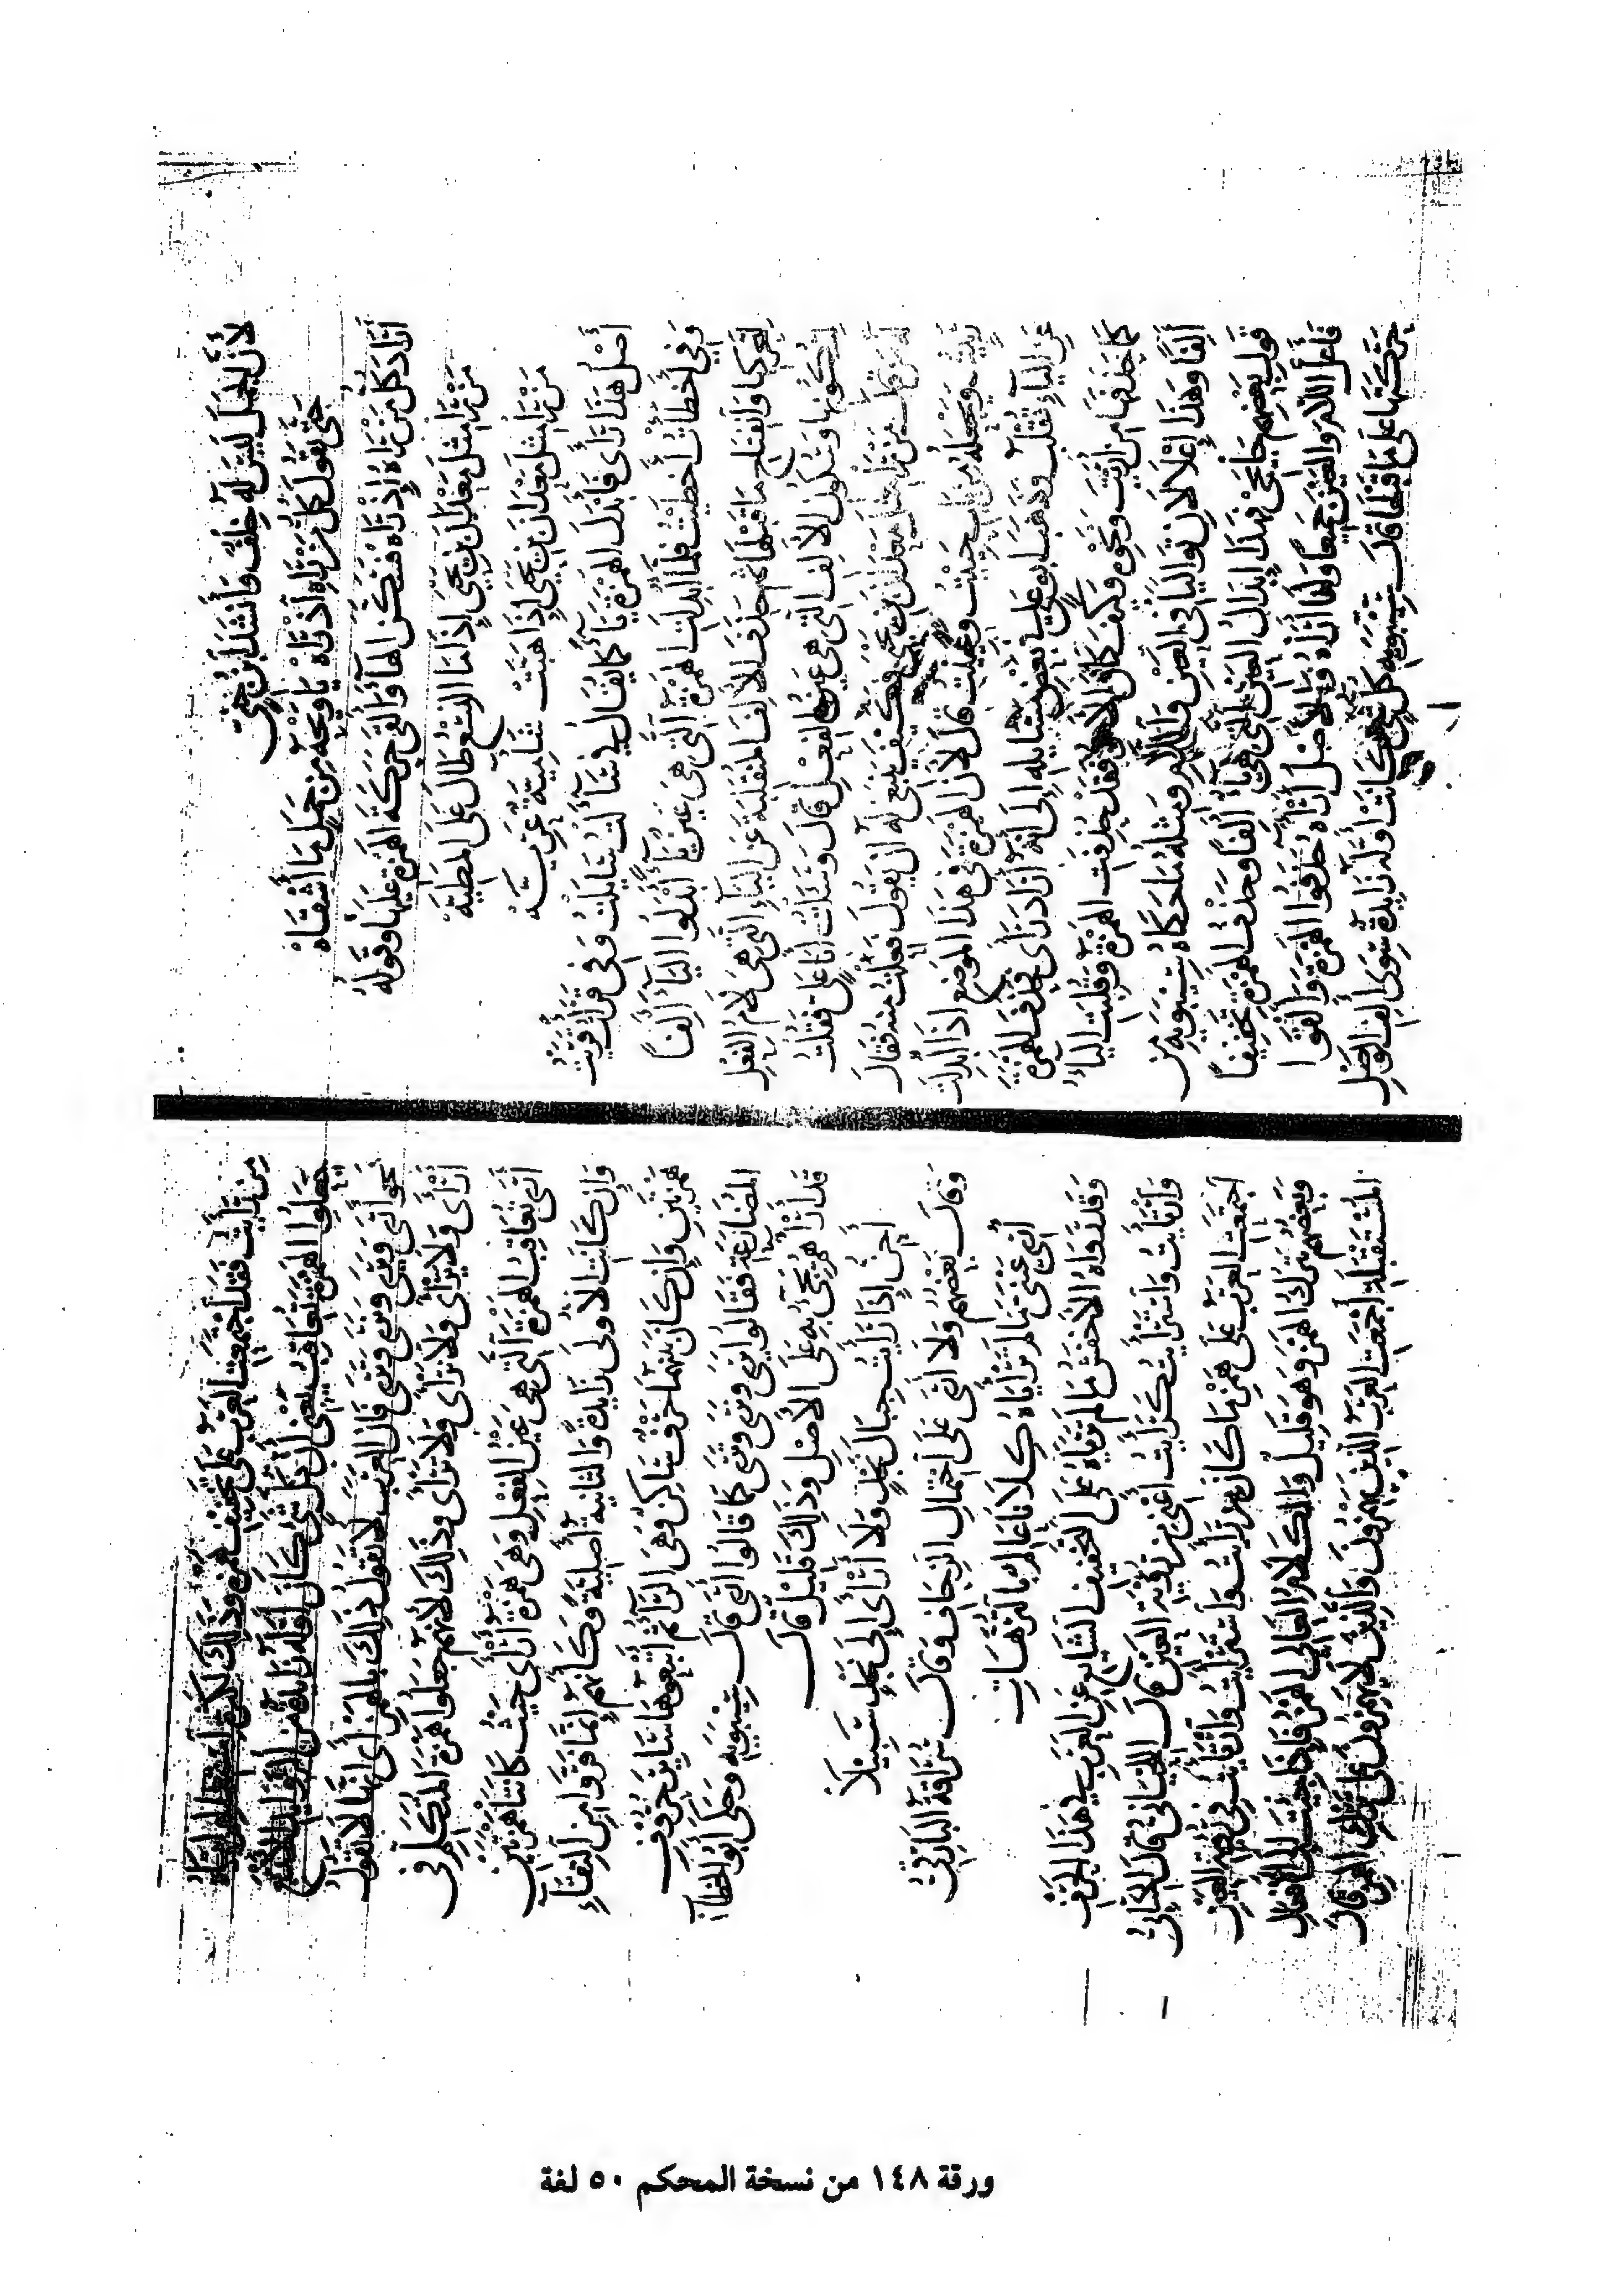 لأن الجمل ليس له خلف فأنشد ابن جني
حتى يقول كل من رآه إذ رآه يا ويحه من جمل ما أشقاه
أراد كل من رآه إذ رآه فسكن الهاء وألقى حركة الهمزة عليها وقوله
من را مثل معدان بن يحيى إذا ما النسع طال على المطيه
من را مثل معدان بن يحيى إذا هبت شآمية عريه
أصل هذا رأى فأبدل الهمزة ياء كما يقال في ساءلت سايلت وفي قرأت قريت
وفي أخطأت أخطيت فلما أبدلت الهمزة التي هي عين ياء أبدلوا الياء ألفا
لتحركها وانفتاح ما قبلها ثم حذف الألف المنقلبة عن الياء التي هي لام الفعل
لسكونها وسكون الألف التي هي عين الفعل قال وسألت أبا علي فقلت
له من قال من را مثل معدان بن يحيى فكيف ينبغي له أن يقول فعلت منه فقال
رييت ويجعله من باب حييت وعييت قال لأن الهمزة في هذا الموضع إذا أبدلت
عن الياء تقلب وذهب أبو علي في بعض مسائله إلى أنه أراد رأى فحذف الهمزة
كما حذفها من أريت ونحوه وكيف كان الأمر فقد حذفت الهمزة وقلبت الياء
ألفا وهذا إعلالان تواليا في العين واللام ومثله ما حكاه سيبويه من
قول بعضهم جا يجي فهذا إبدال العين التي هي ياء ألفا وحذف الهمزة تخفيفا
فأعل اللام والعين جميعا وأنا أرأه والأصل أرآه حذفوا الهمزة وألقوا
حركتها على ما قبلها قال سيبويه كل شيء كانت أوله زايدة سوى ألف الوصل
من رأيت فقد اجتمعت العرب على تخفيف همزه وذلك لكثرة استعمالهم إياه
جعلوا الهمزة تعاقب يعني أن كل شيء كان أوله زايدة من الزوايد الأربعة
نحو أرى ويرى ونرى وترى فإن العرب لا تقول ذلك بالهمز أي أنها لا تقول
أرأى ولا يرأى ولا نرأى ولا ترأى وذلك لأنهم جعلوا همزة المتكلم في
أرى تعاقب الهمزة التي هي عين الفعل وهي همزة أرأى حيث كانتا همزتين
وإن كانت الأولى زايدة والثانية أصلية وكأنهم إنما فروا من التقاء
همزتين وإن كان بينهما حرف ساكن وهي الراء ثم أتبعوها ساير حروف
المضارعة فقالوا يرى ونرى وترى كما قالوا أرى قال سيبويه وحكى أبو الخطاب
قد أرآهم يجيء به على الأصل وذلك قليل قال
أحن إذا رأيت جبال نجد ولا أرأى إلى نجد سبيلا
وقال بعضهم ولا أرى على احتمال الزحاف وقال سراقة البارقي
أري عيني ما لم ترأياه كلانا عالم بالترهات
وقد رواه الأخفش ما لم ترياه على التخفيف الشايع عن العرب في هذا الحرف
وارتأيت واسترأيت كرأيت أعني من رؤية العين قال اللحياني قال الكسائي
اجتمعت العرب على همز ما كان من رأيت واسترأيت وارتأيت في رؤية العين
وبعضهم يترك الهمز وهو قليل والكلام العالي الهمز فإذا جئت إلى الأفعال
المستقبلة أجمعت العرب الذين يهمزون والذين لا يهمزون على ترك الهمز قال
ورقة ١٤٨ من نسخة المحكم ٥٠ لغة